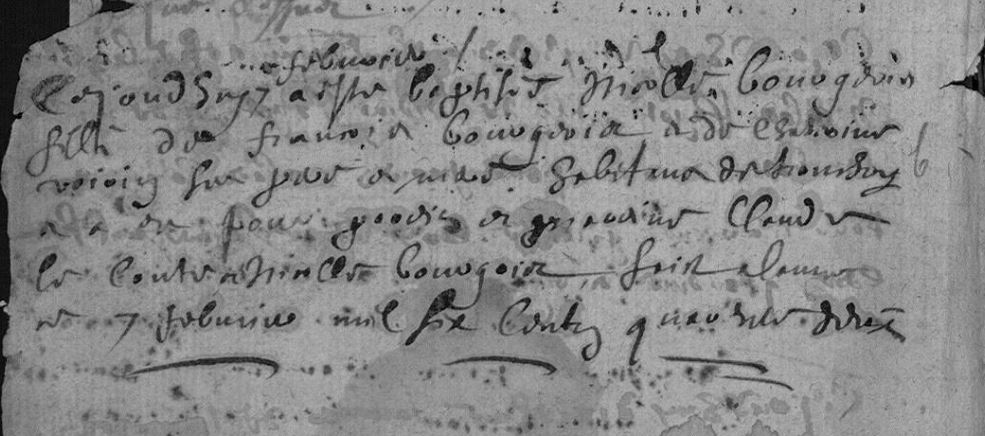 febvrier
Cejourdhuy 7 a este baptisée Nicolle bourgeois
fille de francois bourgeois et de Catherine
voisin ses pere et mere habitans de
a eu pour parin et maraine Claude
le Conte et Nicolle bourgois fait
ce 7 febvrier mil six Centz quarente deux